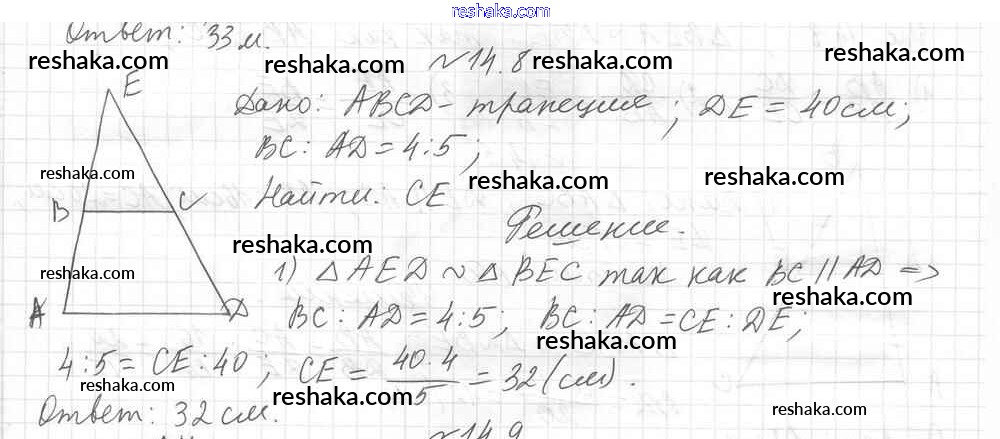 reshaka.com
Ответ: 33 м.
№14.8
reshaka.com reshaka.com reshaka.com
E
Дано: ABCD - трапеция; DE = 40 см;
BC : AD = 4 : 5;
reshaka.com reshaka.com reshaka.com
B C
Найти: CE
Решение.
reshaka.com
1) △ AED ~ △ BEC так как BC || AD =>
reshaka.com reshaka.com
A D
BC : AD = 4 : 5; BC : AD = CE : DE;
reshaka.com
4 : 5 = CE : 40; CE = 40 · 4 / 5 = 32 (см).
reshaka.com reshaka.com
Ответ: 32 см.
reshaka.com
№14.9